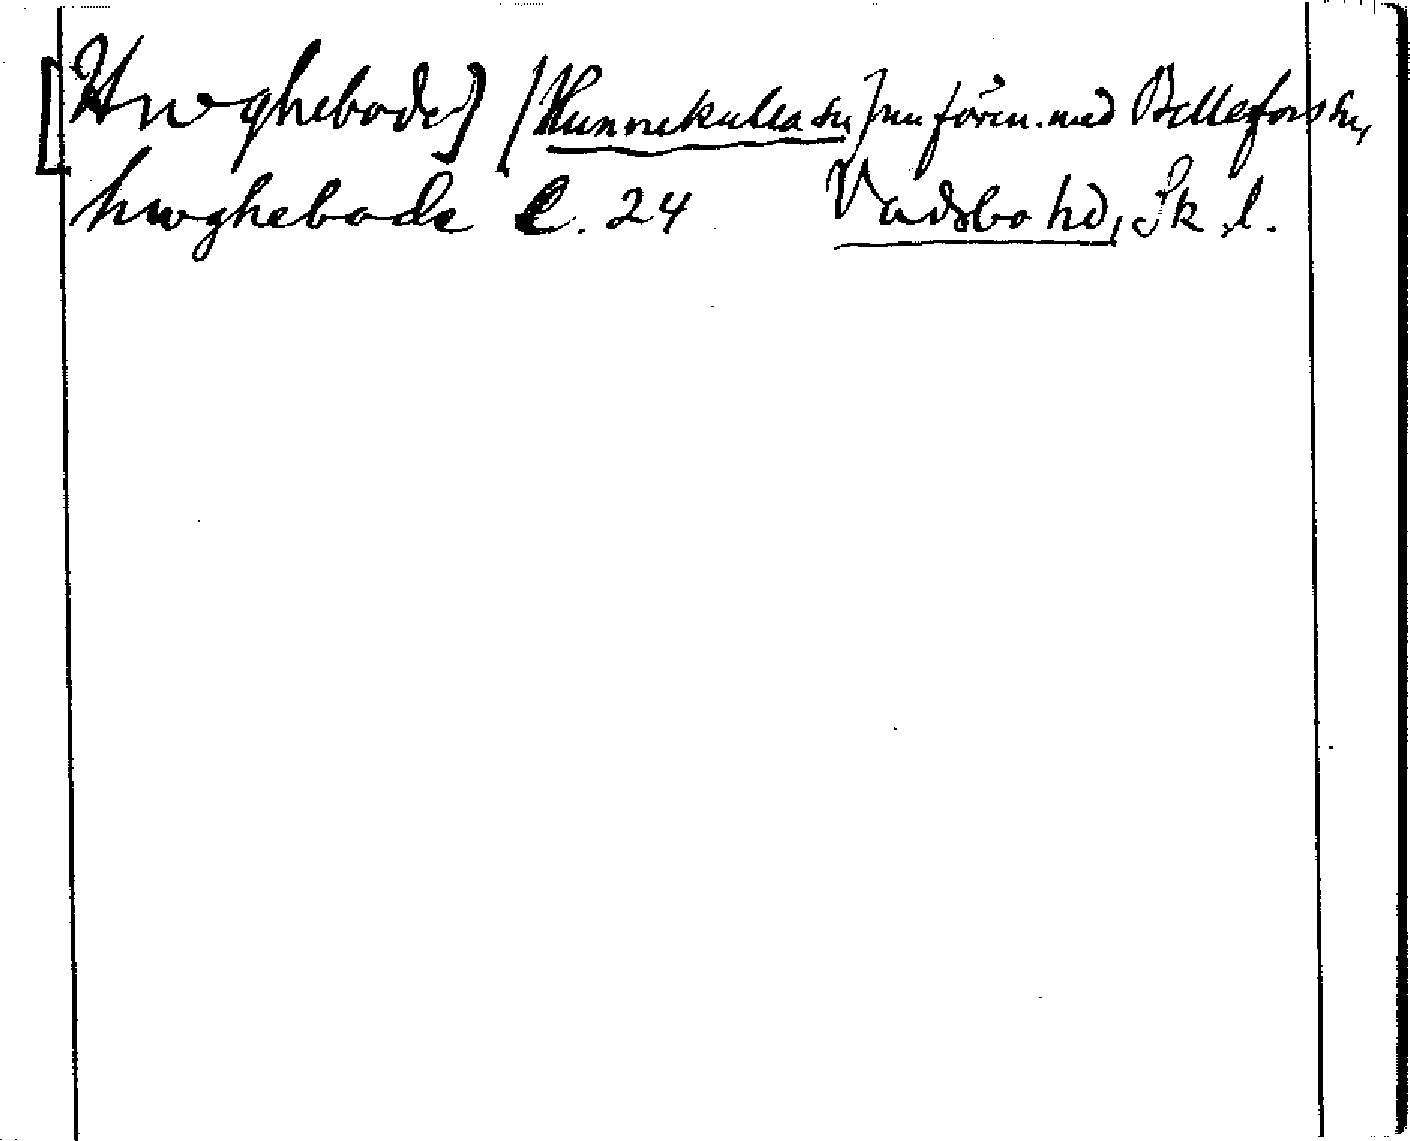 [Hwghebode] [Hunnekulla sn] nu fören. med Bellefors sn,
hwghebode C. 24 Vadsbo hd, Sk. l.